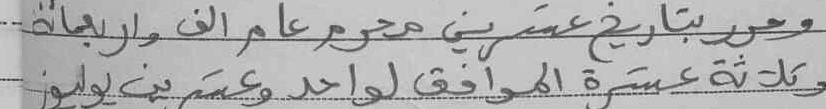 وحرر بتاريخ عشرين محرم عام الف واربعمائة
وثلاثة عشرة الموافق لواحد وعشرين يوليوز